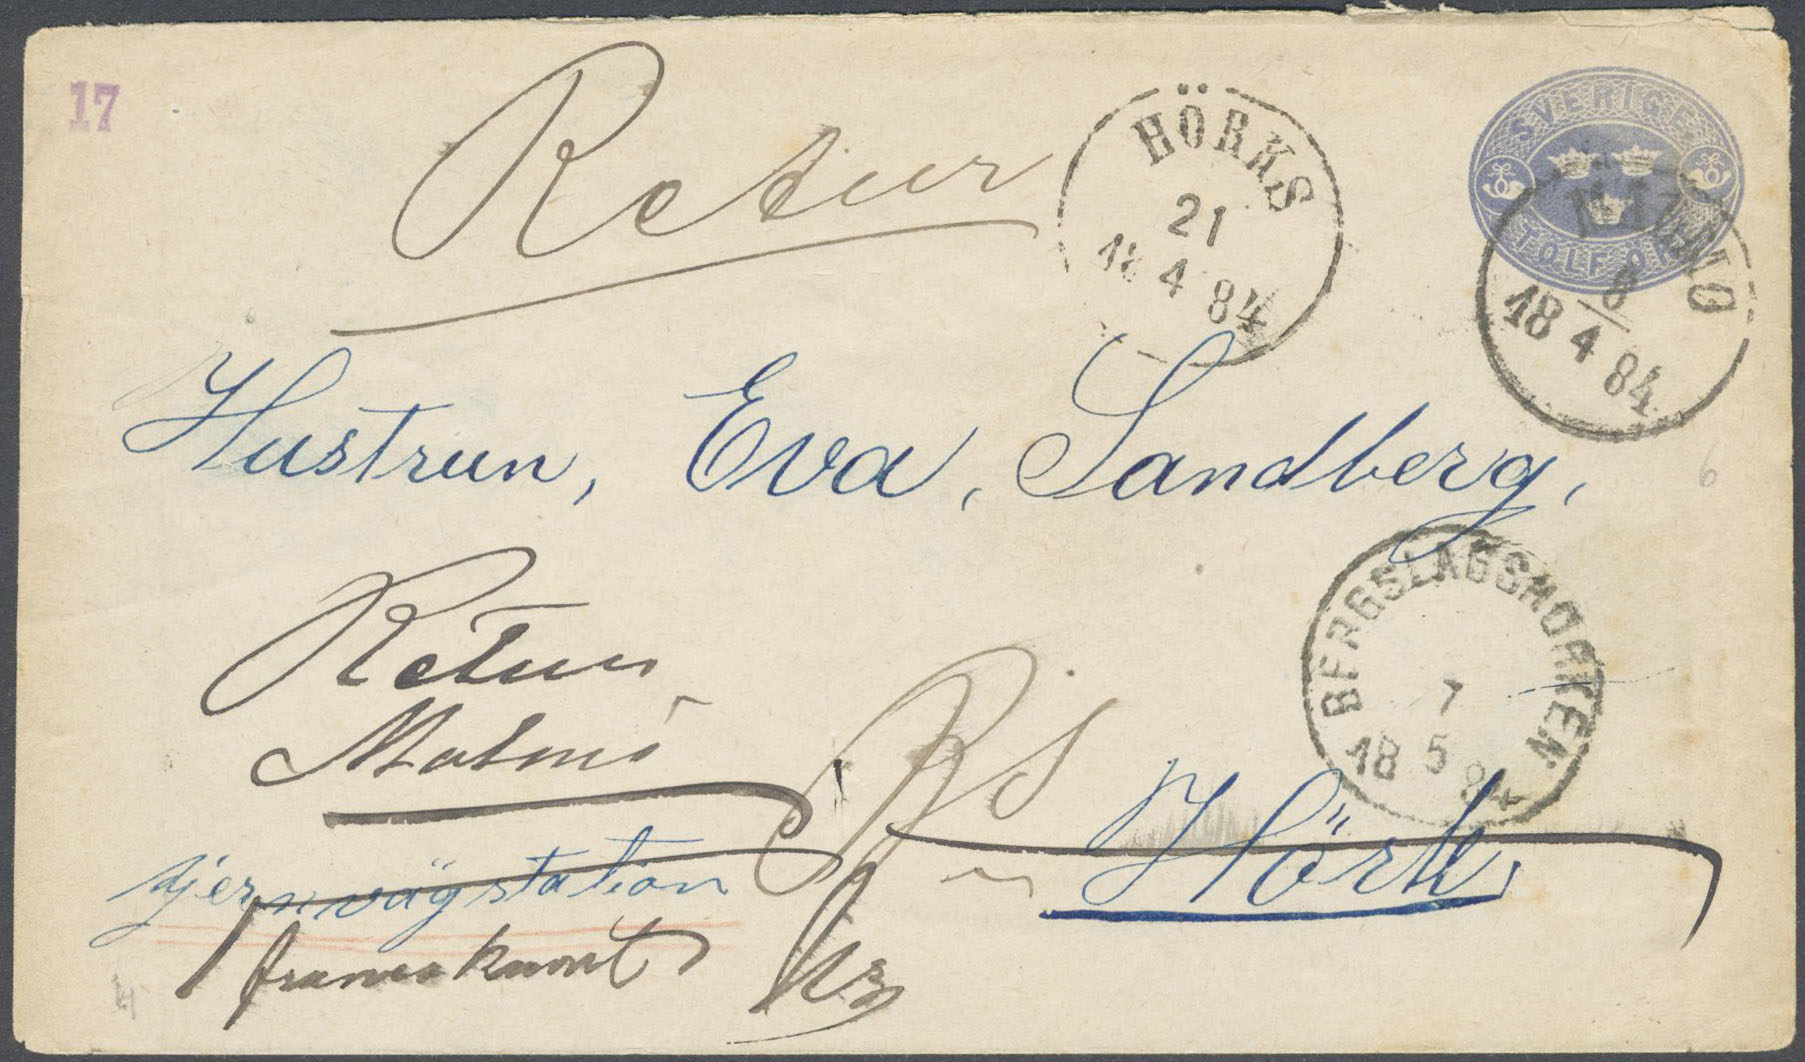 17
Retur
HÖRKS
21
18 4 84
SVERIGE
TOLF ÖRE
MALMÖ
8
18 4 84
Hustrun, Eva, Sandberg,
6
BERGSLAGSNORREN
7
18 5 84
Retur
Malmö
Hörks
jernvägstation